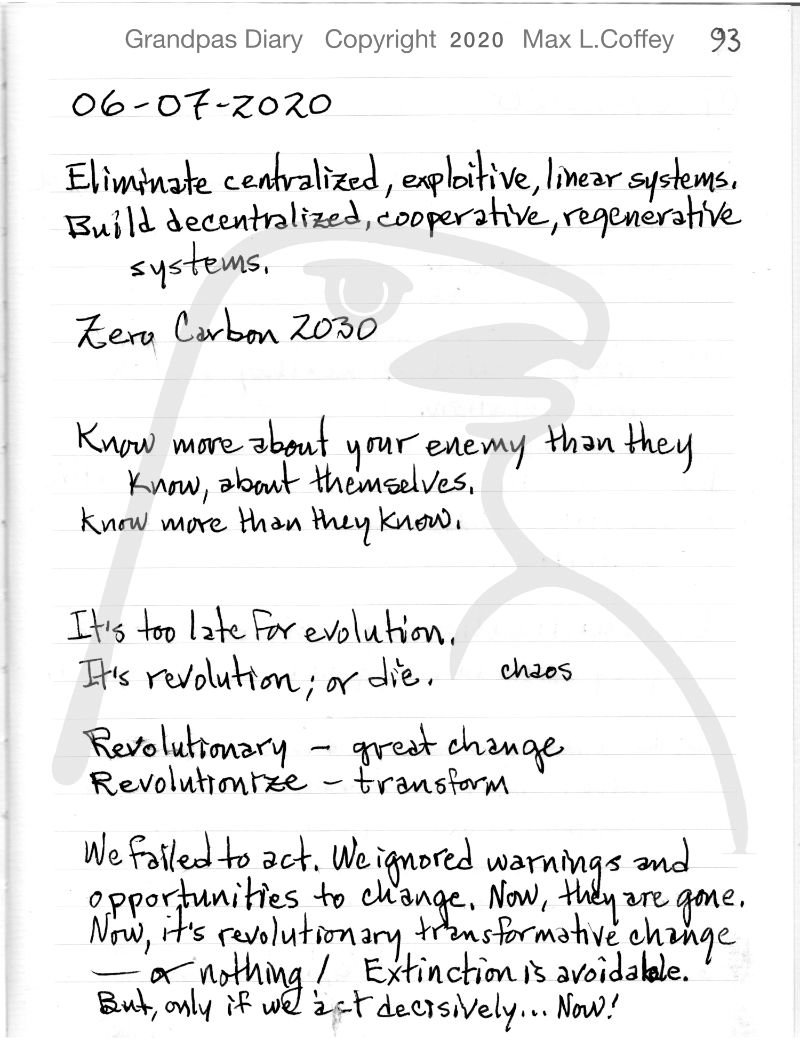 Grandpas Diary Copyright 2020 Max L.Coffey 93
06-07-2020
Eliminate centralized, exploitive, linear systems.
Build decentralized, cooperative, regenerative
systems.
Zero Carbon 2030
Know more about your enemy than they
know, about themselves.
Know more than they know.
It's too late for evolution.
It's revolution; or die. chaos
Revolutionary - great change
Revolutionize - transform
We failed to act. We ignored warnings and
opportunities to change. Now, they are gone.
Now, it's revolutionary transformative change
— or nothing! Extinction is avoidable.
But, only if we act decisively... Now!